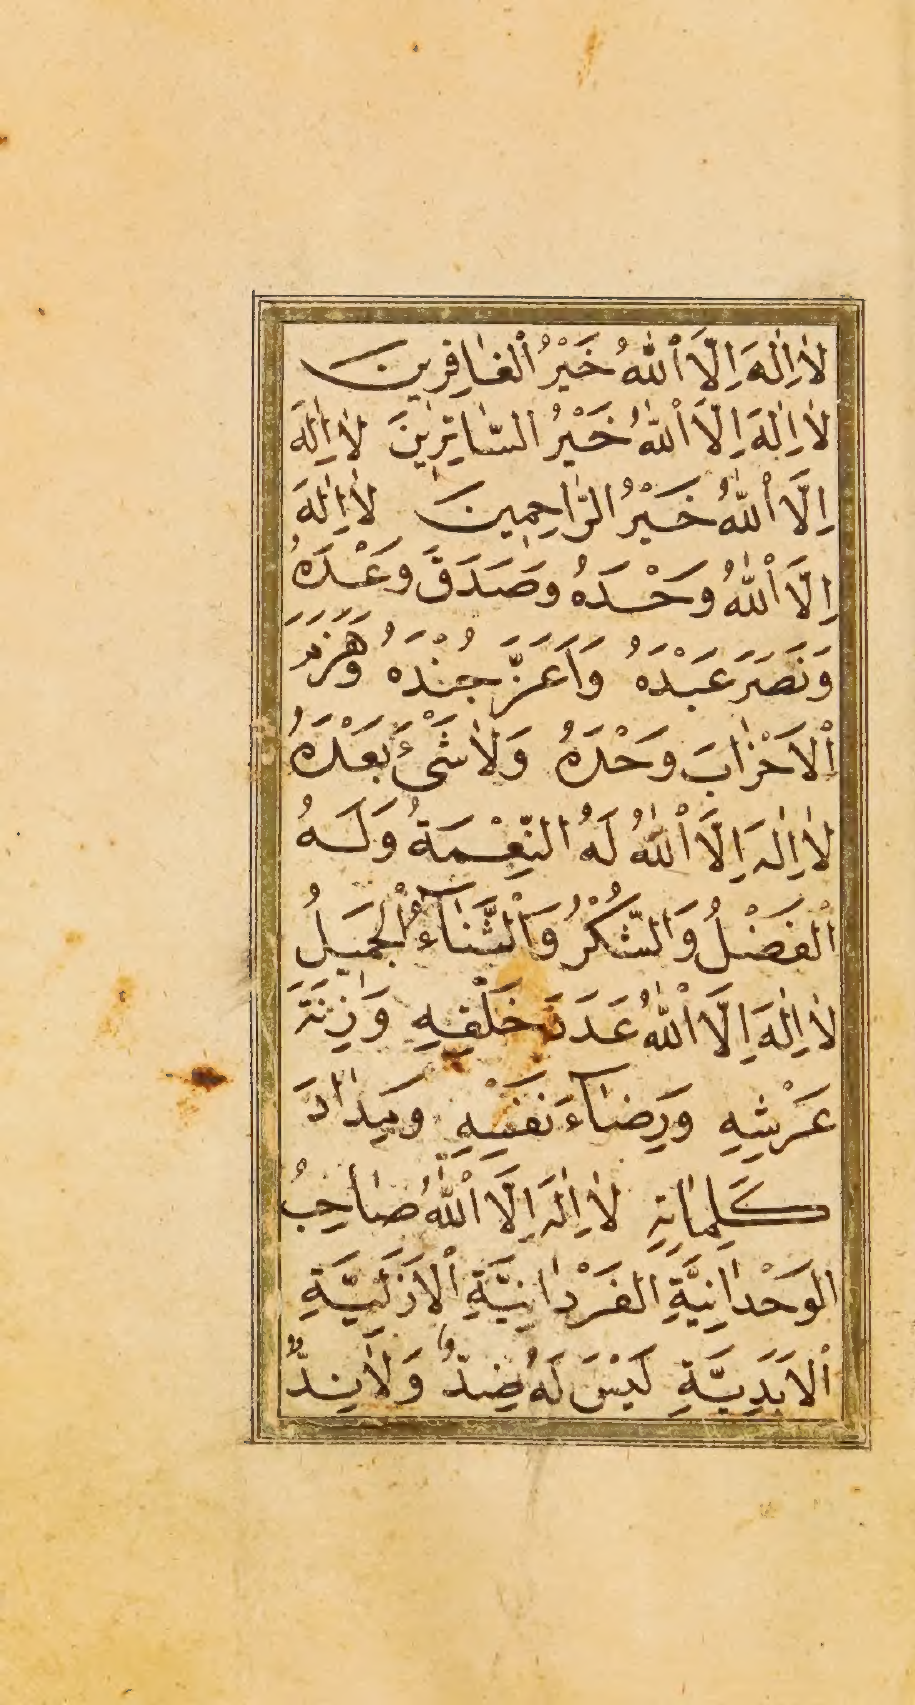 لَا اِلٰهَ اِلَّا اللّٰهُ خَيْرُ الْغَافِرِينَ
لَا اِلٰهَ اِلَّا اللّٰهُ خَيْرُ السَّاتِرِينَ لَا اِلٰهَ
اِلَّا اللّٰهُ خَيْرُ الرَّاحِمِينَ لَا اِلٰهَ
اِلَّا اللّٰهُ وَحْدَهُ وَصَدَقَ وَعْدَهُ
وَنَصَرَ عَبْدَهُ وَاَعَزَّ جُنْدَهُ وَهَزَمَ
الْاَحْزَابَ وَحْدَهُ وَلَا شَىْءَ بَعْدَهُ
لَا اِلٰهَ اِلَّا اللّٰهُ لَهُ النِّعْمَةُ وَلَهُ
الْفَضْلُ وَالشُّكْرُ وَالثَّنَاءُ الْجَمِيلُ
لَا اِلٰهَ اِلَّا اللّٰهُ عَدَدَ خَلْقِهِ وَزِنَةَ
عَرْشِهِ وَرِضَاءَ نَفْسِهِ وَمِدَادَ
كَلِمَاتِهِ لَا اِلٰهَ اِلَّا اللّٰهُ صَاحِبُ
الْوَحْدَانِيَّةِ الْفَرْدَانِيَّةِ الْاَزَلِيَّةِ
الْاَبَدِيَّةِ لَيْسَ لَهُ ضِدٌّ وَلَا نِدٌّ